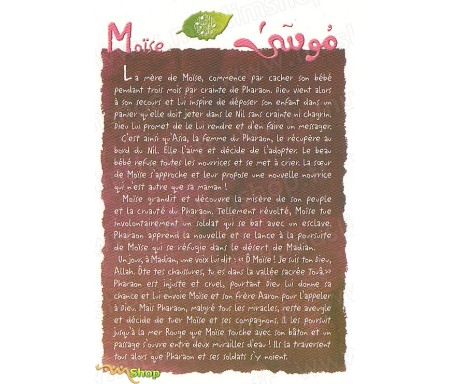 Moïse موسى
La mère de Moïse, commence par cacher son bébé
pendant trois mois par crainte de Pharaon. Dieu vient alors
à son secours et lui inspire de déposer son enfant dans un
panier qu'elle doit jeter dans le Nil sans crainte ni chagrin.
Dieu lui promet de le lui rendre et d'en faire un messager.
C'est ainsi qu'Asia, la femme du Pharaon, le récupère au
bord du Nil. Elle l'aime et décide de l'adopter. Le beau
bébé refuse toutes les nourrices et se met à crier. La sœur
de Moïse s'approche et leur propose une nouvelle nourrice
qui n'est autre que sa maman !
Moïse grandit et découvre la misère de son peuple
et la cruauté du Pharaon. Tellement révolté, Moïse tue
involontairement un soldat qui se bat avec un esclave.
Pharaon apprend la nouvelle et se lance à la poursuite
de Moïse qui se réfugie dans le désert de Madian.
Un jour, à Madian, une voix lui dit : «Ô Moïse ! Je suis ton Dieu,
Allah. Ôte tes chaussures, tu es dans la vallée sacrée Touâ.»
Pharaon est injuste et cruel, pourtant Dieu lui donne sa
chance et lui envoie Moïse et son frère Aaron pour l'appeler
à Dieu. Mais Pharaon, malgré tous les miracles, reste aveugle
et décide de tuer Moïse et ses compagnons. Il les poursuit
jusqu'à la mer Rouge que Moïse touche avec son bâton et un
passage s'ouvre entre deux murailles d'eau ! Ils la traversent
tous alors que Pharaon et ses soldats s'y noient.
Shop